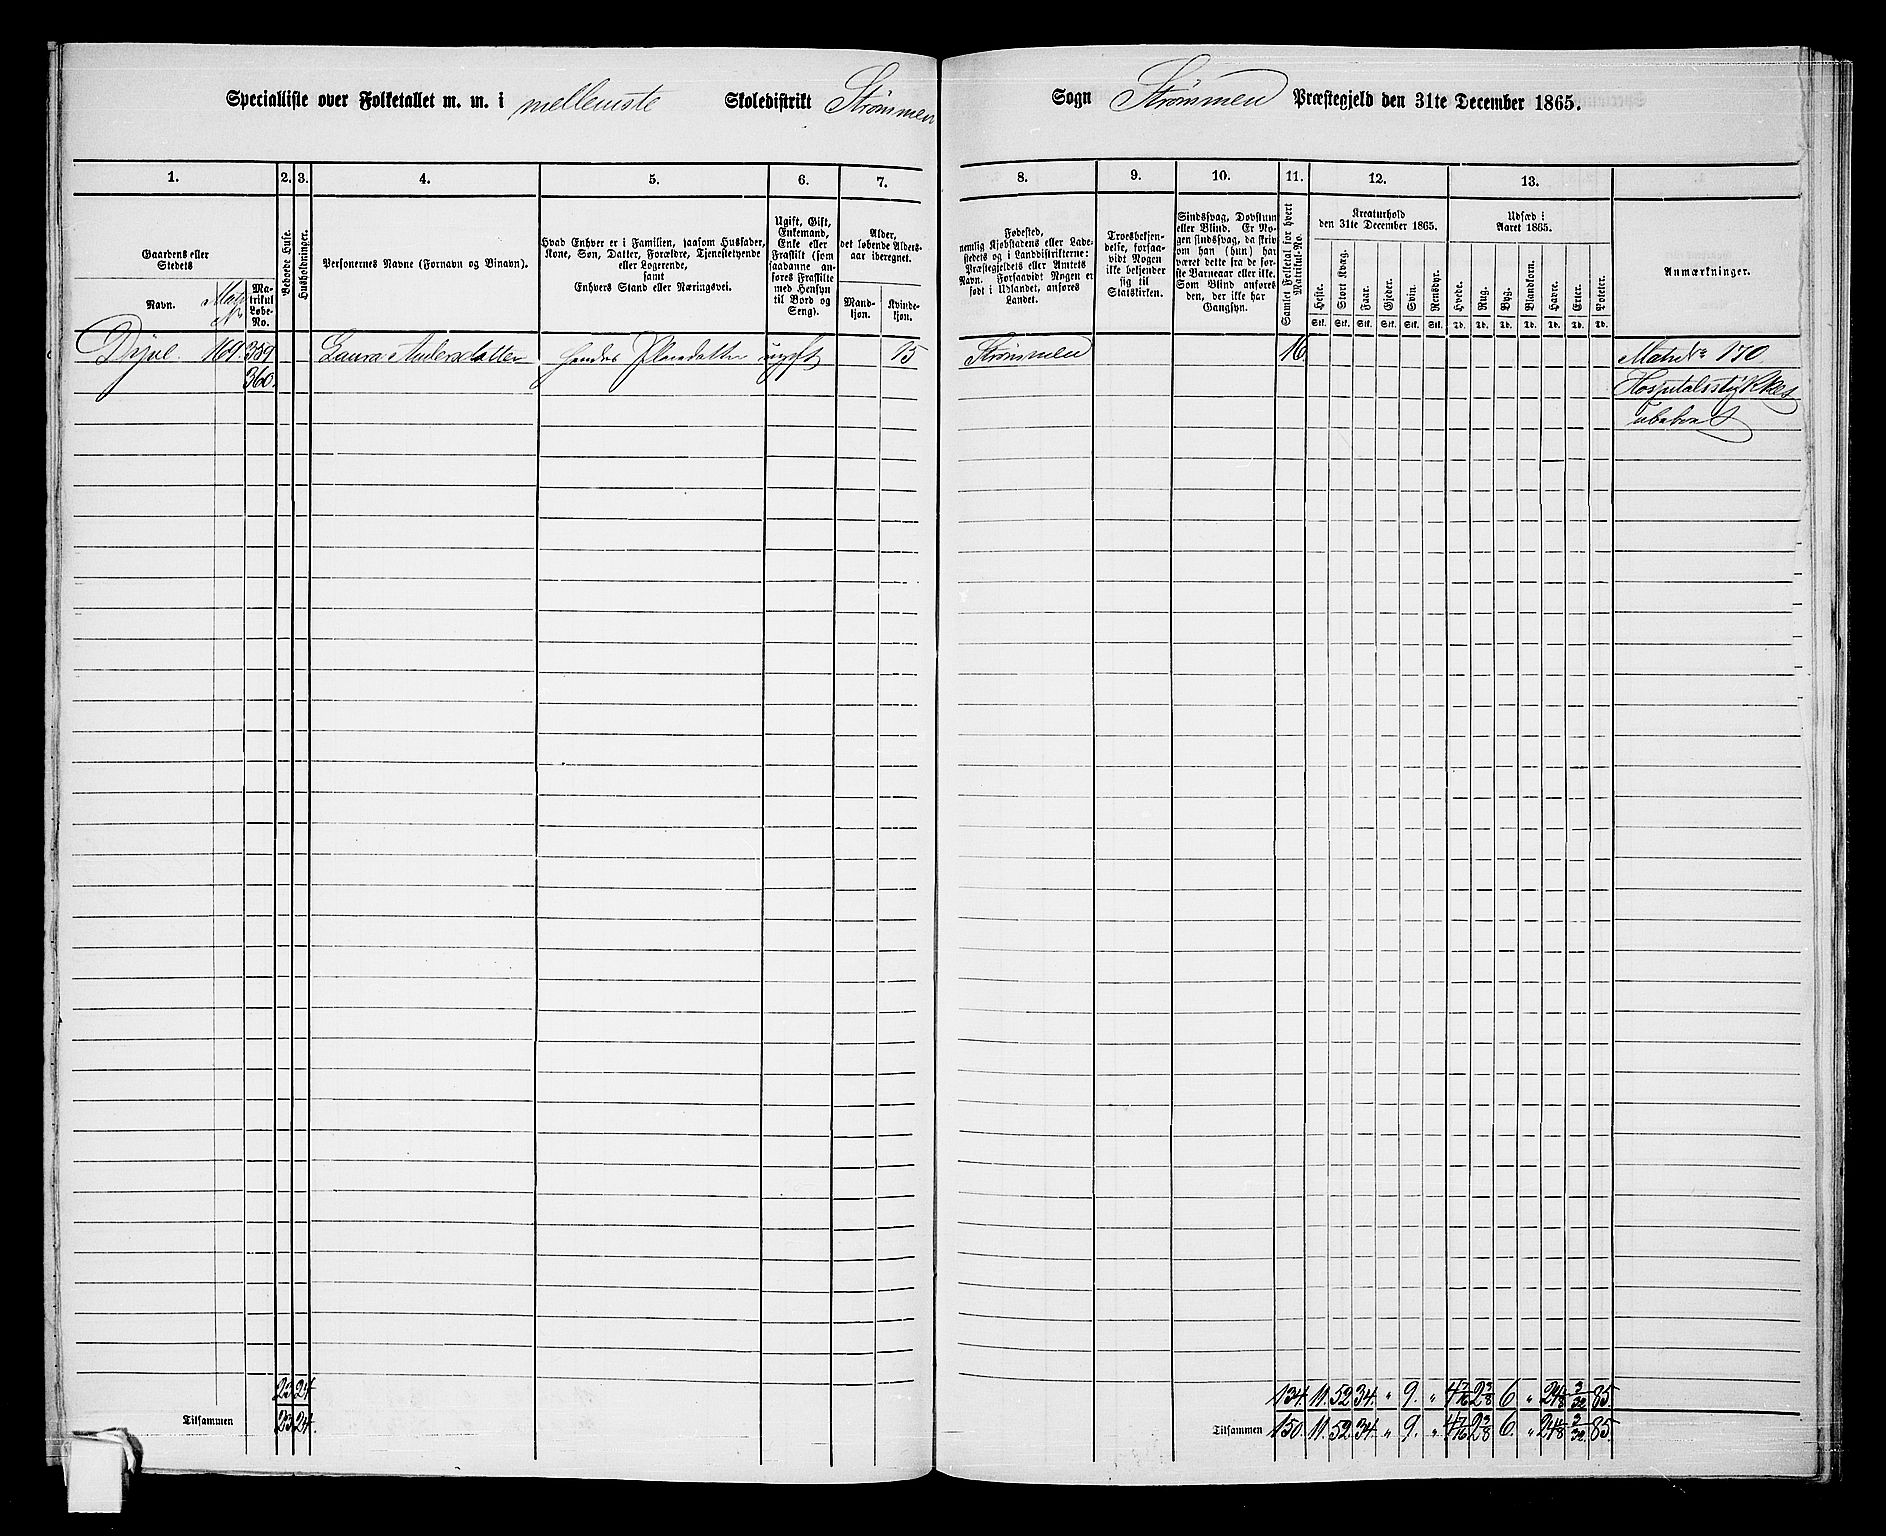 Specialliste over Folketallet m. m. i mellemste Skoledistrikt Strømmen Sogn Strømmen Præstegjeld den 31te December 1865.
1. 2. 3. 4. 5. 6. 7. 8. 9. 10. 11. 12. 13.
Gaardens eller Stedets
Navn.
Matr No
Matrikul Løbe-No.
Beboede Huse.
Husholdninger.
Personernes Navne (Fornavn og Binavn).
Hvad Enhver er i Familien, saasom Husfader,
Kone, Søn, Datter, Forældre, Tjenestetyende
eller Logerende,
samt
Enhvers Stand eller Næringsvei.
Ugift, Gift,
Enkemand,
Enke eller
Fraskilt (som
saadanne an-
føres Fraskilte
med Hensyn
til Bord og
Seng).
Alder,
det løbende Alders-
aar iberegnet.
Mand-
kjøn.
Kvinde-
kjøn.
Fødested,
nemlig Kjøbstadens eller Lade-
stedets og i Landdistrikterne:
Præstegjeldets eller Amtets
Navn. Forsaavidt Nogen er
født i Udlandet, anføres
Landet.
Troesbekjen-
delse, forsaa-
vidt Nogen
ikke bekjender
sig til
Statskirken.
Sindssvag, Døvstum
eller Blind. Er No-
gen sindssvag, da skriv
om han (hun) har
været dette fra de før-
ste Barneaar eller ikke.
Som Blind anføres
den, der ikke har
Gangsyn.
Samlet Folketal for hvert
Matrikul-No.
Kreaturhold
den 31te December 1865.
Heste. Stort Kvæg. Faar. Gjeder. Svin. Rensdyr.
Udsæd i
Aaret 1865.
Hvede. Rug. Byg. Blandkorn. Havre. Erter. Poteter.
Stk. Stk. Stk. Stk. Stk. Stk. Td. Td. Td. Td. Td. Td. Td.
Anmærkninger.
169. 359 Laura Andersdatter hendes Pleiedatter ugift 15 Strømmen 16. Matr No 170
360. Hospitalsstykket
ubeboet
23 24 134. 11. 52. 34. " 9. " 4 7/16 2 3/8 6 " 24 1/8 3/32 85.
Tilsammen 23 24. Tilsammen 150. 11. 52. 34. " 9. " 4 7/16 2 3/8 6. " 24 1/8 3/32 85.